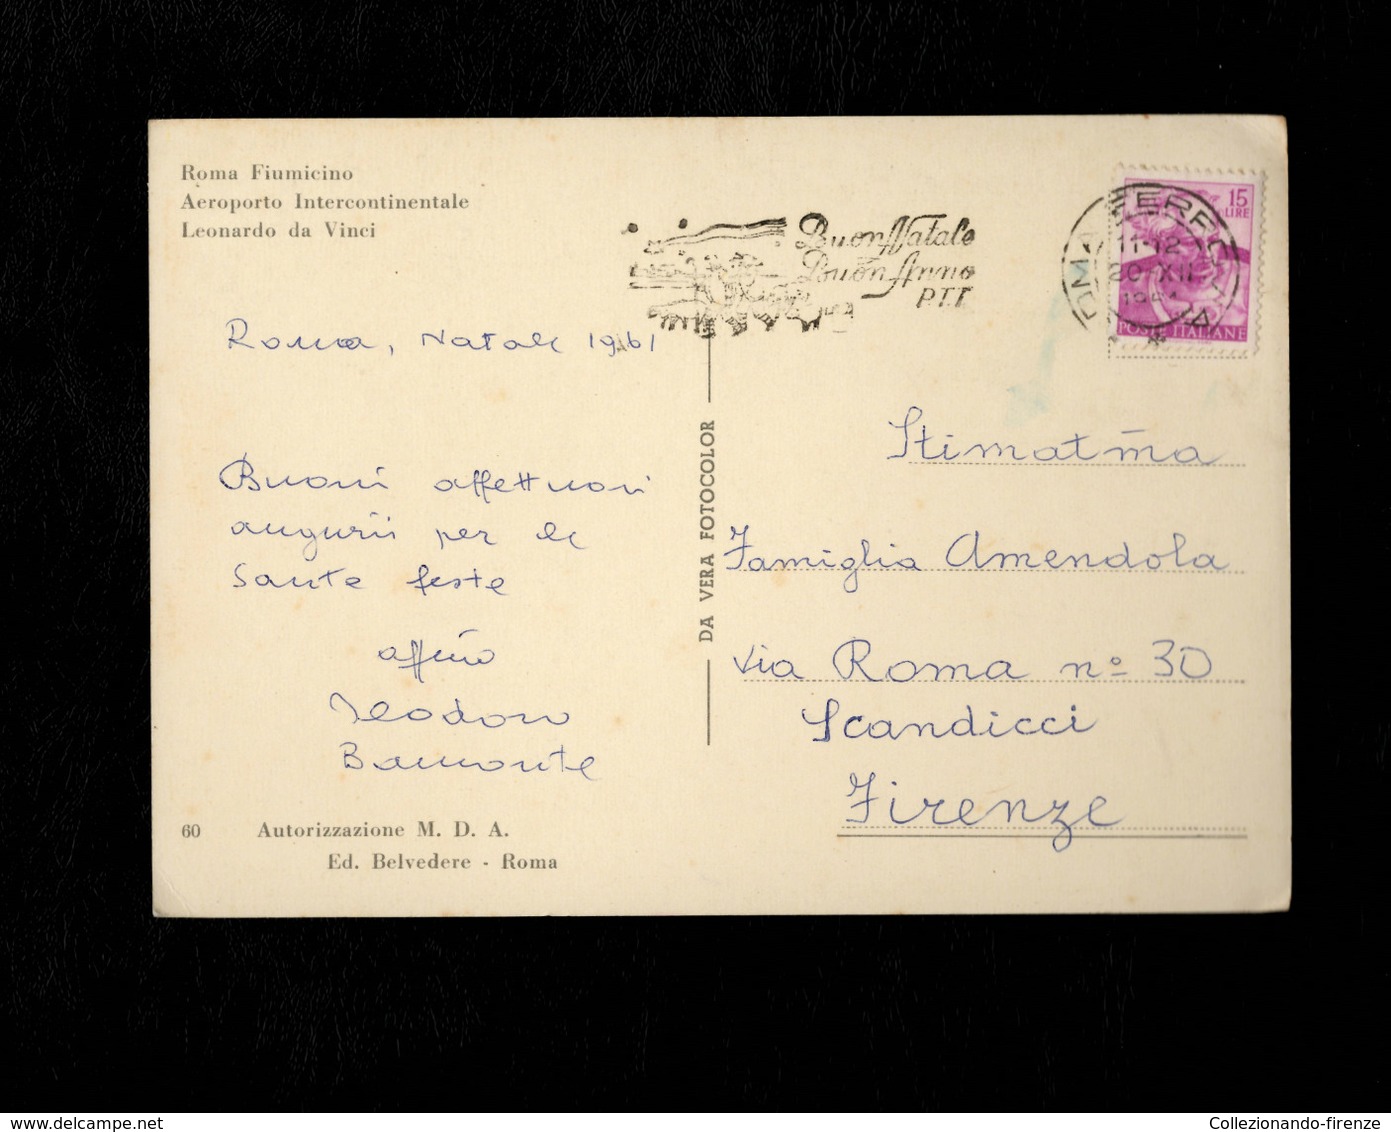 Roma Fiumicino
Aeroporto Intercontinentale
Leonardo da Vinci
Buon Natale
Buon Anno
P.T.T.
15
LIRE
ROMA FERROVIA
11-12
20·XII
1961
POSTE ITALIANE
Roma, Natale 1961
Buoni affettuosi
auguri per le
Sante feste
aff.mo
Teodoro
Bamonte
DA VERA FOTOCOLOR
Stimat.ma
Famiglia Amendola
via Roma n° 30
Scandicci
Firenze
60 Autorizzazione M. D. A.
Ed. Belvedere - Roma
Collezionando-firenze